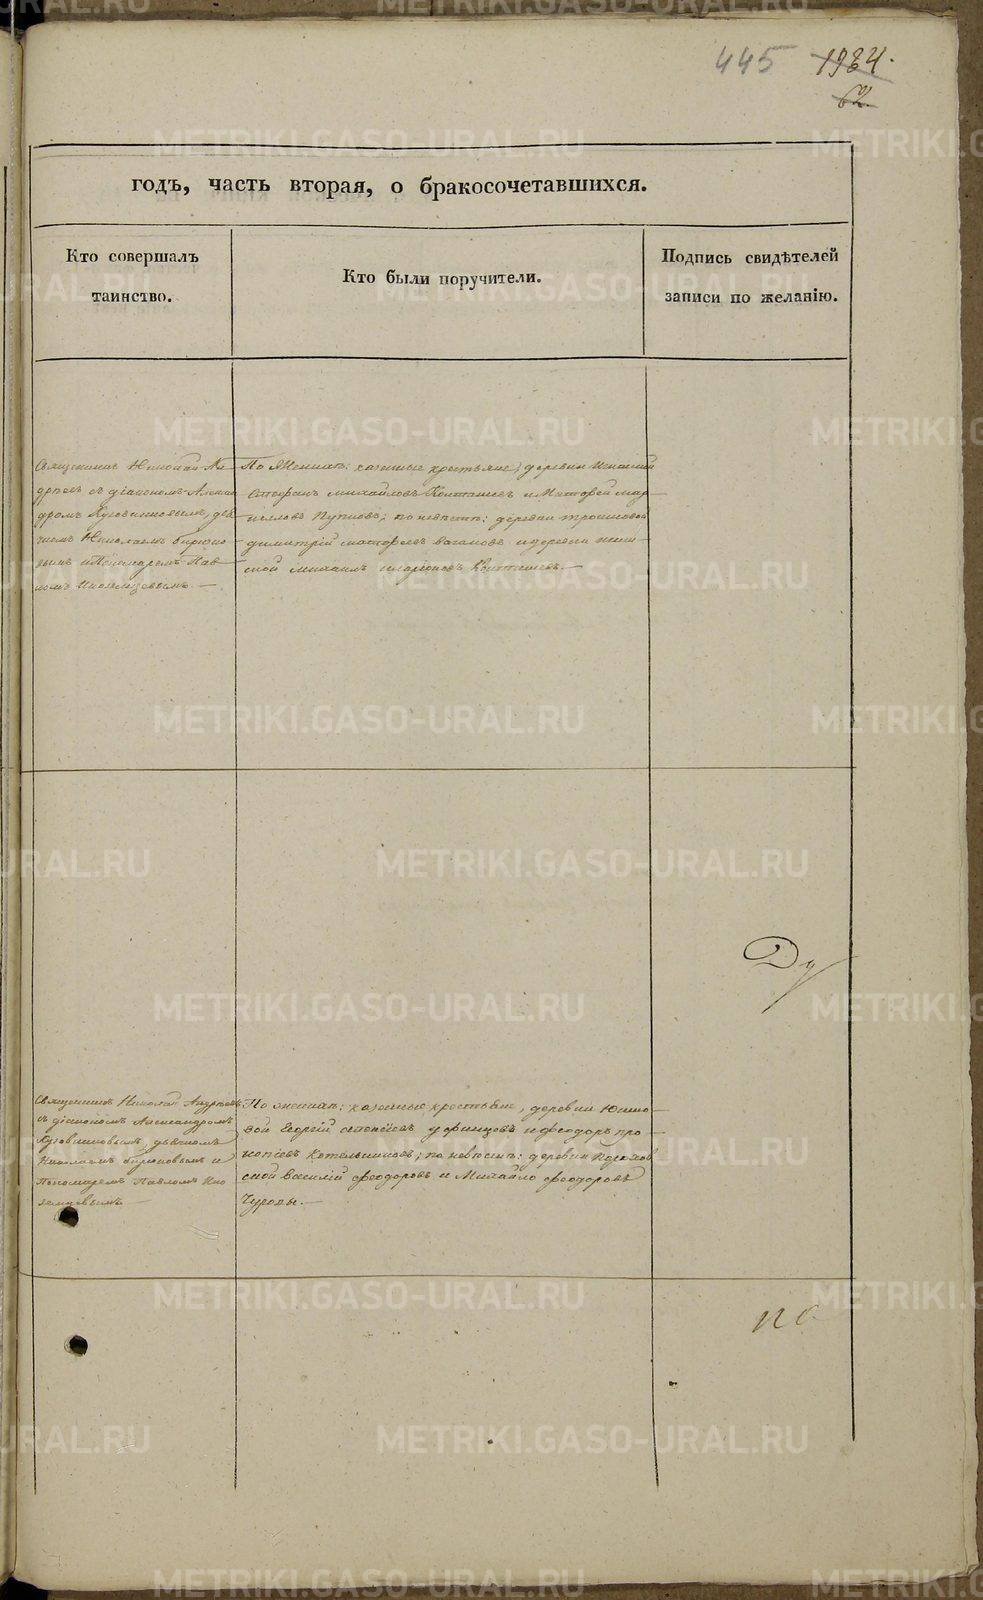 445 1984.
62.
годъ, часть вторая, о бракосочетавшихся.
Кто совершалъ
таинство.
Кто были поручители.
Подпись свидѣтелей
записи по желанію.
Священникъ Николай Ан-
дрѣевъ съ діакономъ Алексан
дромъ Кузовниковымъ, дья
чкомъ Николаемъ Бирюко
вымъ и Пономаремъ Пав
ломъ Иноземцовымъ. —
По Женихѣ: казенные крестьяне, деревни
Стефанъ Михайловъ Колташевъ и Матфей Мар
по невѣстѣ: деревни
Димитрій Матфеевъ Вагановъ и деревни
ской Михаилъ Иларіоновъ Колташевъ. —
Священникъ Николай Андрѣевъ
съ діакономъ Александромъ
Кузовниковымъ, дьячкомъ
Николаемъ Бирюковымъ и
Пономаремъ Павломъ Ино
земцовымъ. —
По женихѣ: казенные крестьяне, деревни
вой Георгій Алексѣевъ Уфинцовъ и Феодоръ Про-
копіевъ Котельниковъ; по невѣстѣ: деревни
ской Василій Феодоровъ и Михайло Феодоровъ
Чуровы. —
Ду
METRIKI.GASO-URAL.RU